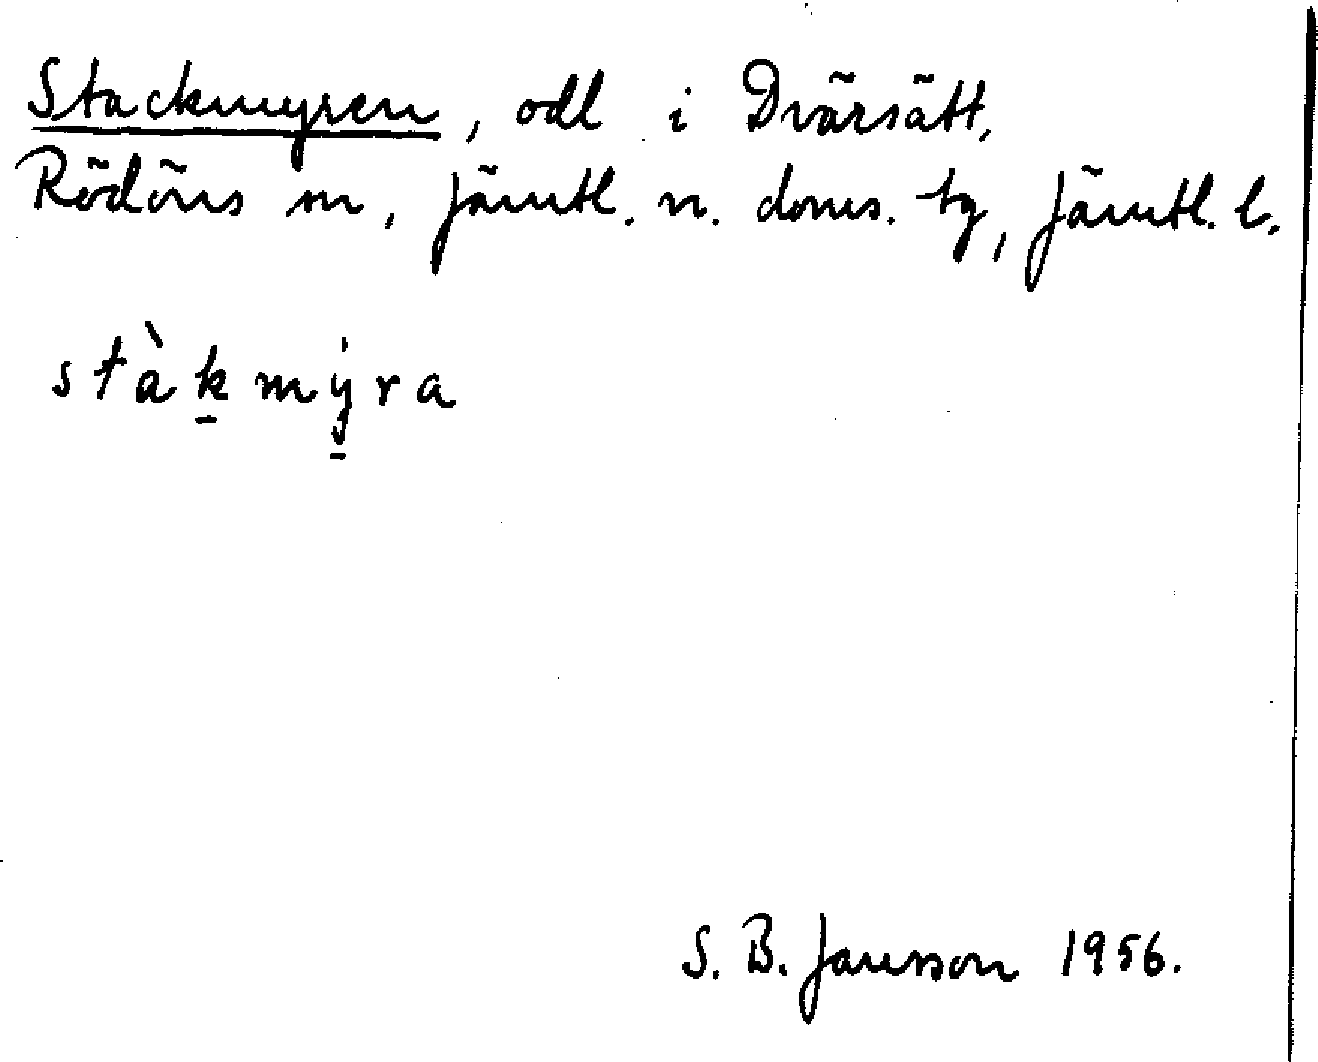 Stackmyren, odl i Dvärsätt,
Rödöns sn, Jämtl. n. doms. tg, Jämtl. l.
stàk̠mẏ̠ra
S. B. Jansson 1956.